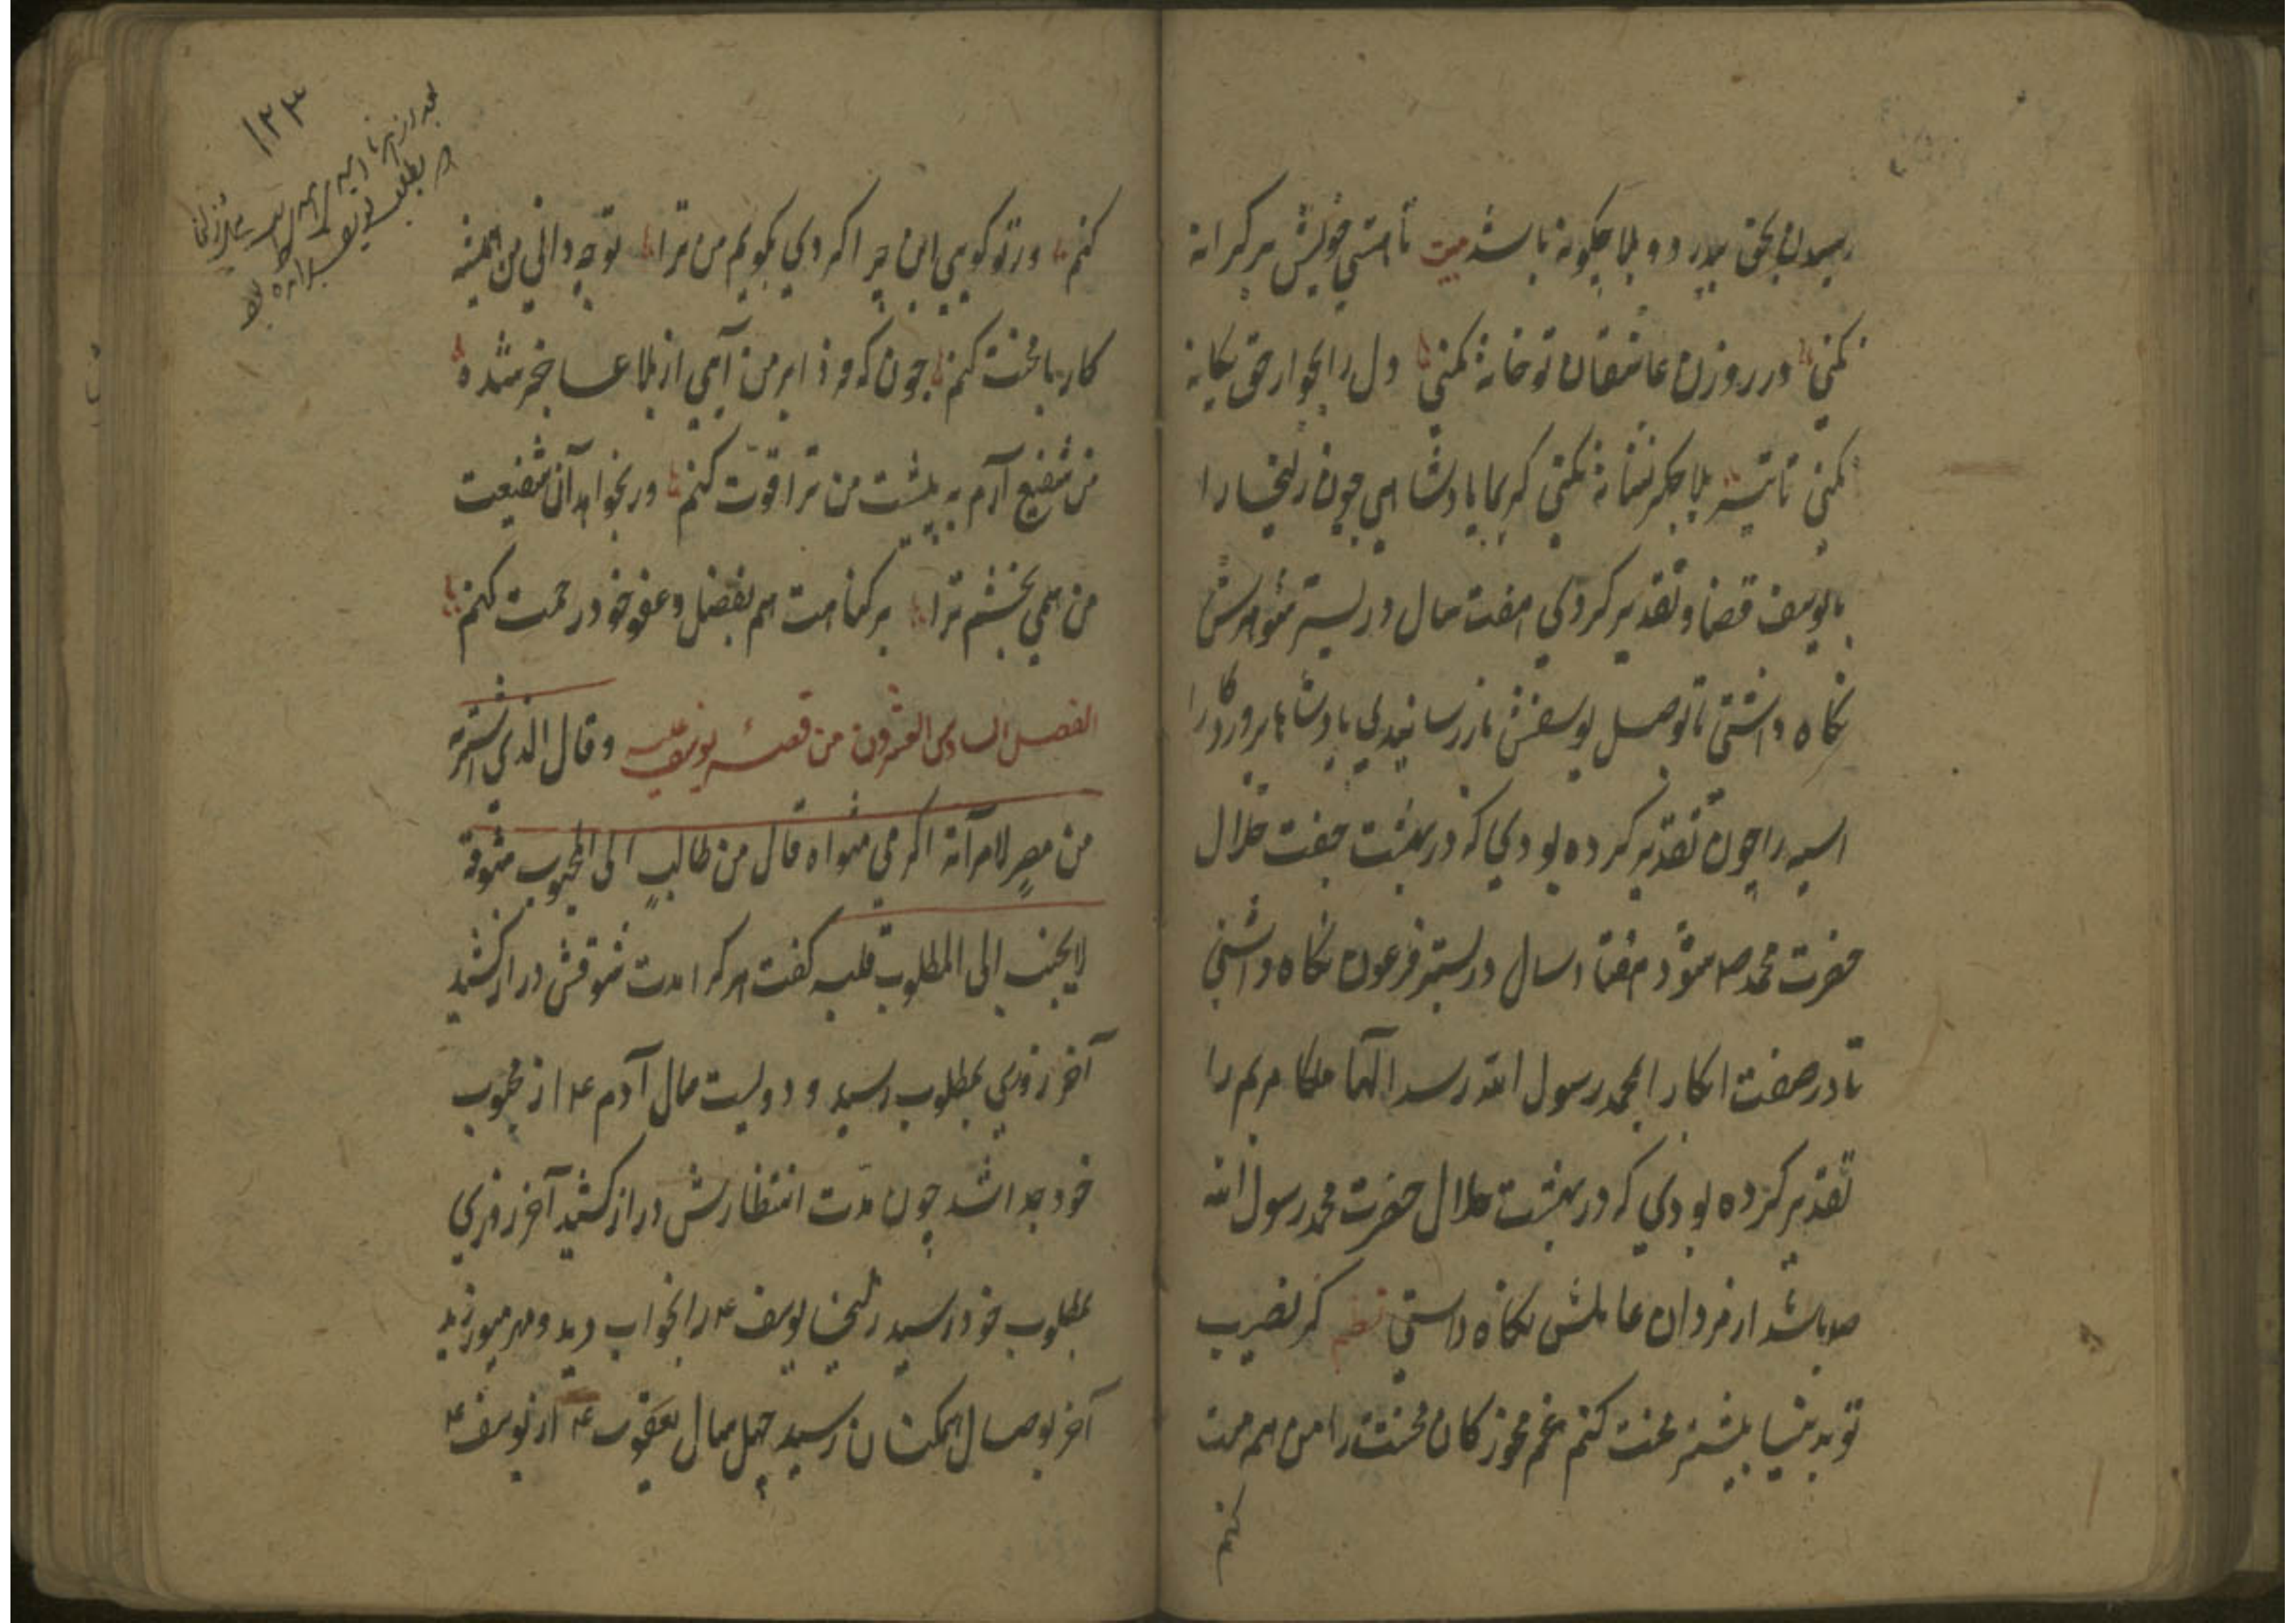 رسیدن بحق بیدرد و بلا چکونه باشد بیت تا هستی خویش بر کرانه
نکنی در روزن عاشقان تو خانه نکنی دل را بجوار حق یکانه
نکنی تا تیر بلا جکر نشانه نکنی کریما پادشاهی چون زلیخا را
با یوسف قضا و تقدیر کردی هفت سال در بستر شوهرش
نکاه داشتی تا بوصل یوسفش باز رسانیدی پادشاها پروردکارا
اسیه را چون تقدیر کرده بودی که در بهشت جفت حلال
حضرت محمد صه شود هفتاد سال در بستر فرعون نکاه داشتی
تا در صفت ابکارا بمحمد رسول الله رسد الهما ملکا مریم را
تقدیر کرده بودی که در بهشت حلال حضرت محمد رسول الله
صه باشد از مردان عالمش نکاه داستی نظم کر نصیب
تو بدنیا بیشتر محنت کنم غم مخور کان محنتت را من هم منت
کنم
۱۲۳
کنم ور تو کویی این چرا کردی بکویم من ترا تو چه دانی من همیشه
کار با محنت کنم چون که روز ابر من آیی از بلا عاجز شده
من شفیع آرم به پیشت من ترا قوت کنم ور نخواهد آن شفیعت
من همی بخشم ترا بر کناهت هم بفضل و عفو خود رحمت کنم
الفصل السادی العشرون من قصه یوسف علیه وقال الذی اشتریه
من مصر لامرآته اکرمی مثواه قال من طالب الی المحبوب شوقه
لایجنب الی المطلوب قلبه کفت هر کرا مدت شوقش دراز کشید
آخر روزی بمطلوب رسید و دویست سال آدم ع از محبوب
خود جدا شد چون مدت انتظارش دراز کشید آخر روزی
بمطلوب خود رسید زلیخا یوسف ع را بخواب دید و مهر میورزید
آخر بوصال همکنان رسید چهل سال یعقوب ع از یوسف ع